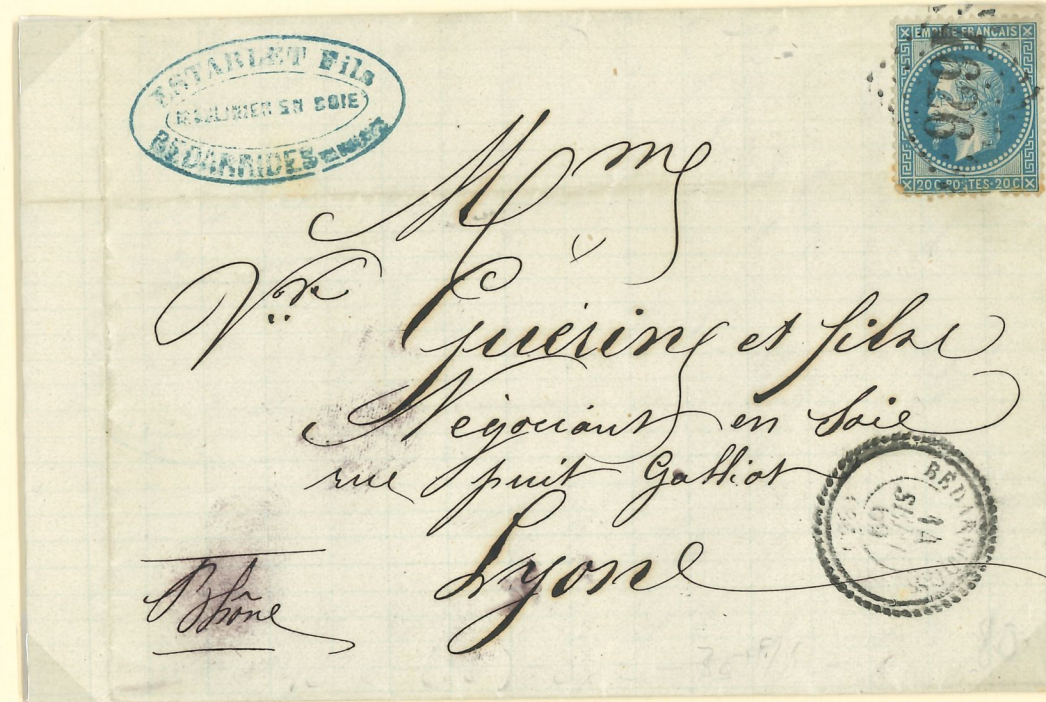 ESTARLET Fils
MOULINIER EN SOIE
BÉDARRIDES
EMPIRE FRANÇAIS
20 C POSTES 20 C
Mme
Vve Guérin et fils
Négociant en Soie
rue puit Galliot
Lyon
Rhône
BÉDARRIDES
14
69